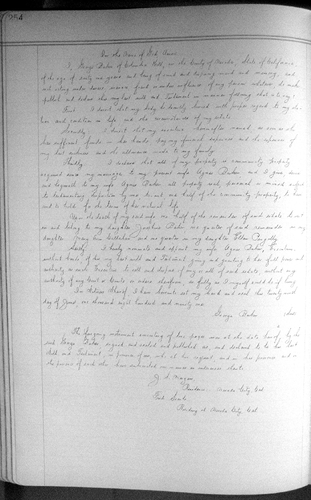 254
In the Name of God, Amen.
I, George Baker of Columbia Hill, in the County of Nevada, State of California,
of the age of sixty one years and being of sound and disposing mind and memory, and
not acting under duress, menace, fraud or undue influence of any person whatever do make
publish and declare this my last will and testament in manner following, that is to say:
First. I direct that my body be decently buried with proper regard to my
and condition in life and the circumstances of my estate.
Secondly. I direct that my executrix hereinafter named, as soon as she
has sufficient funds in her hands pay my funeral expenses and the expenses of
my last sickness and the allowance made to my family.
Thirdly. I declare that all of my property is community property
acquired since my marriage to my present wife Agnes Baker and I give devise
and bequeath to my wife Agnes Baker all property real, personal or mixed subject
to testamentary disposition by me to wit one half of the community property, to have
and to hold for the term of her natural life.
Upon the death of my said wife one half of the remainder of said estate to
go and belong to my daughter Baker one quarter of said remainder to my
daughter Mary and one quarter to my daughter Ellen
Lastly. I hereby nominate and appoint my wife Agnes Baker, Executrix
without bonds of this my last will and testament giving and granting to her full power and
authority as such Executrix to sell and dispose of any or all of said estate without any
authority of any Court or Courts or order therefrom, as fully as I myself could do if living.
In Witness Whereof I have hereunto set my hand and seal this twenty
day of June, one thousand eight hundred and ninety one.
George Baker
The foregoing instrument consisting of two pages was at the date hereof by the
said George Baker, signed and sealed and published as, and declared to be his Last
Will and Testament, in presence of us, who at his request, and in his presence and in
the presence of each other have subscribed our names as witnesses thereto.
Nevada City, Cal.
Residing at Nevada City, Cal.